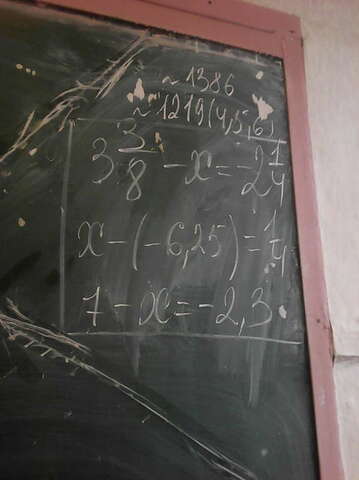 ~ 1386
~ 1219(4,5,6)
3 3/8 - x = -2 1/4
x - (-6,25) = 1/4
7 - x = -2,3